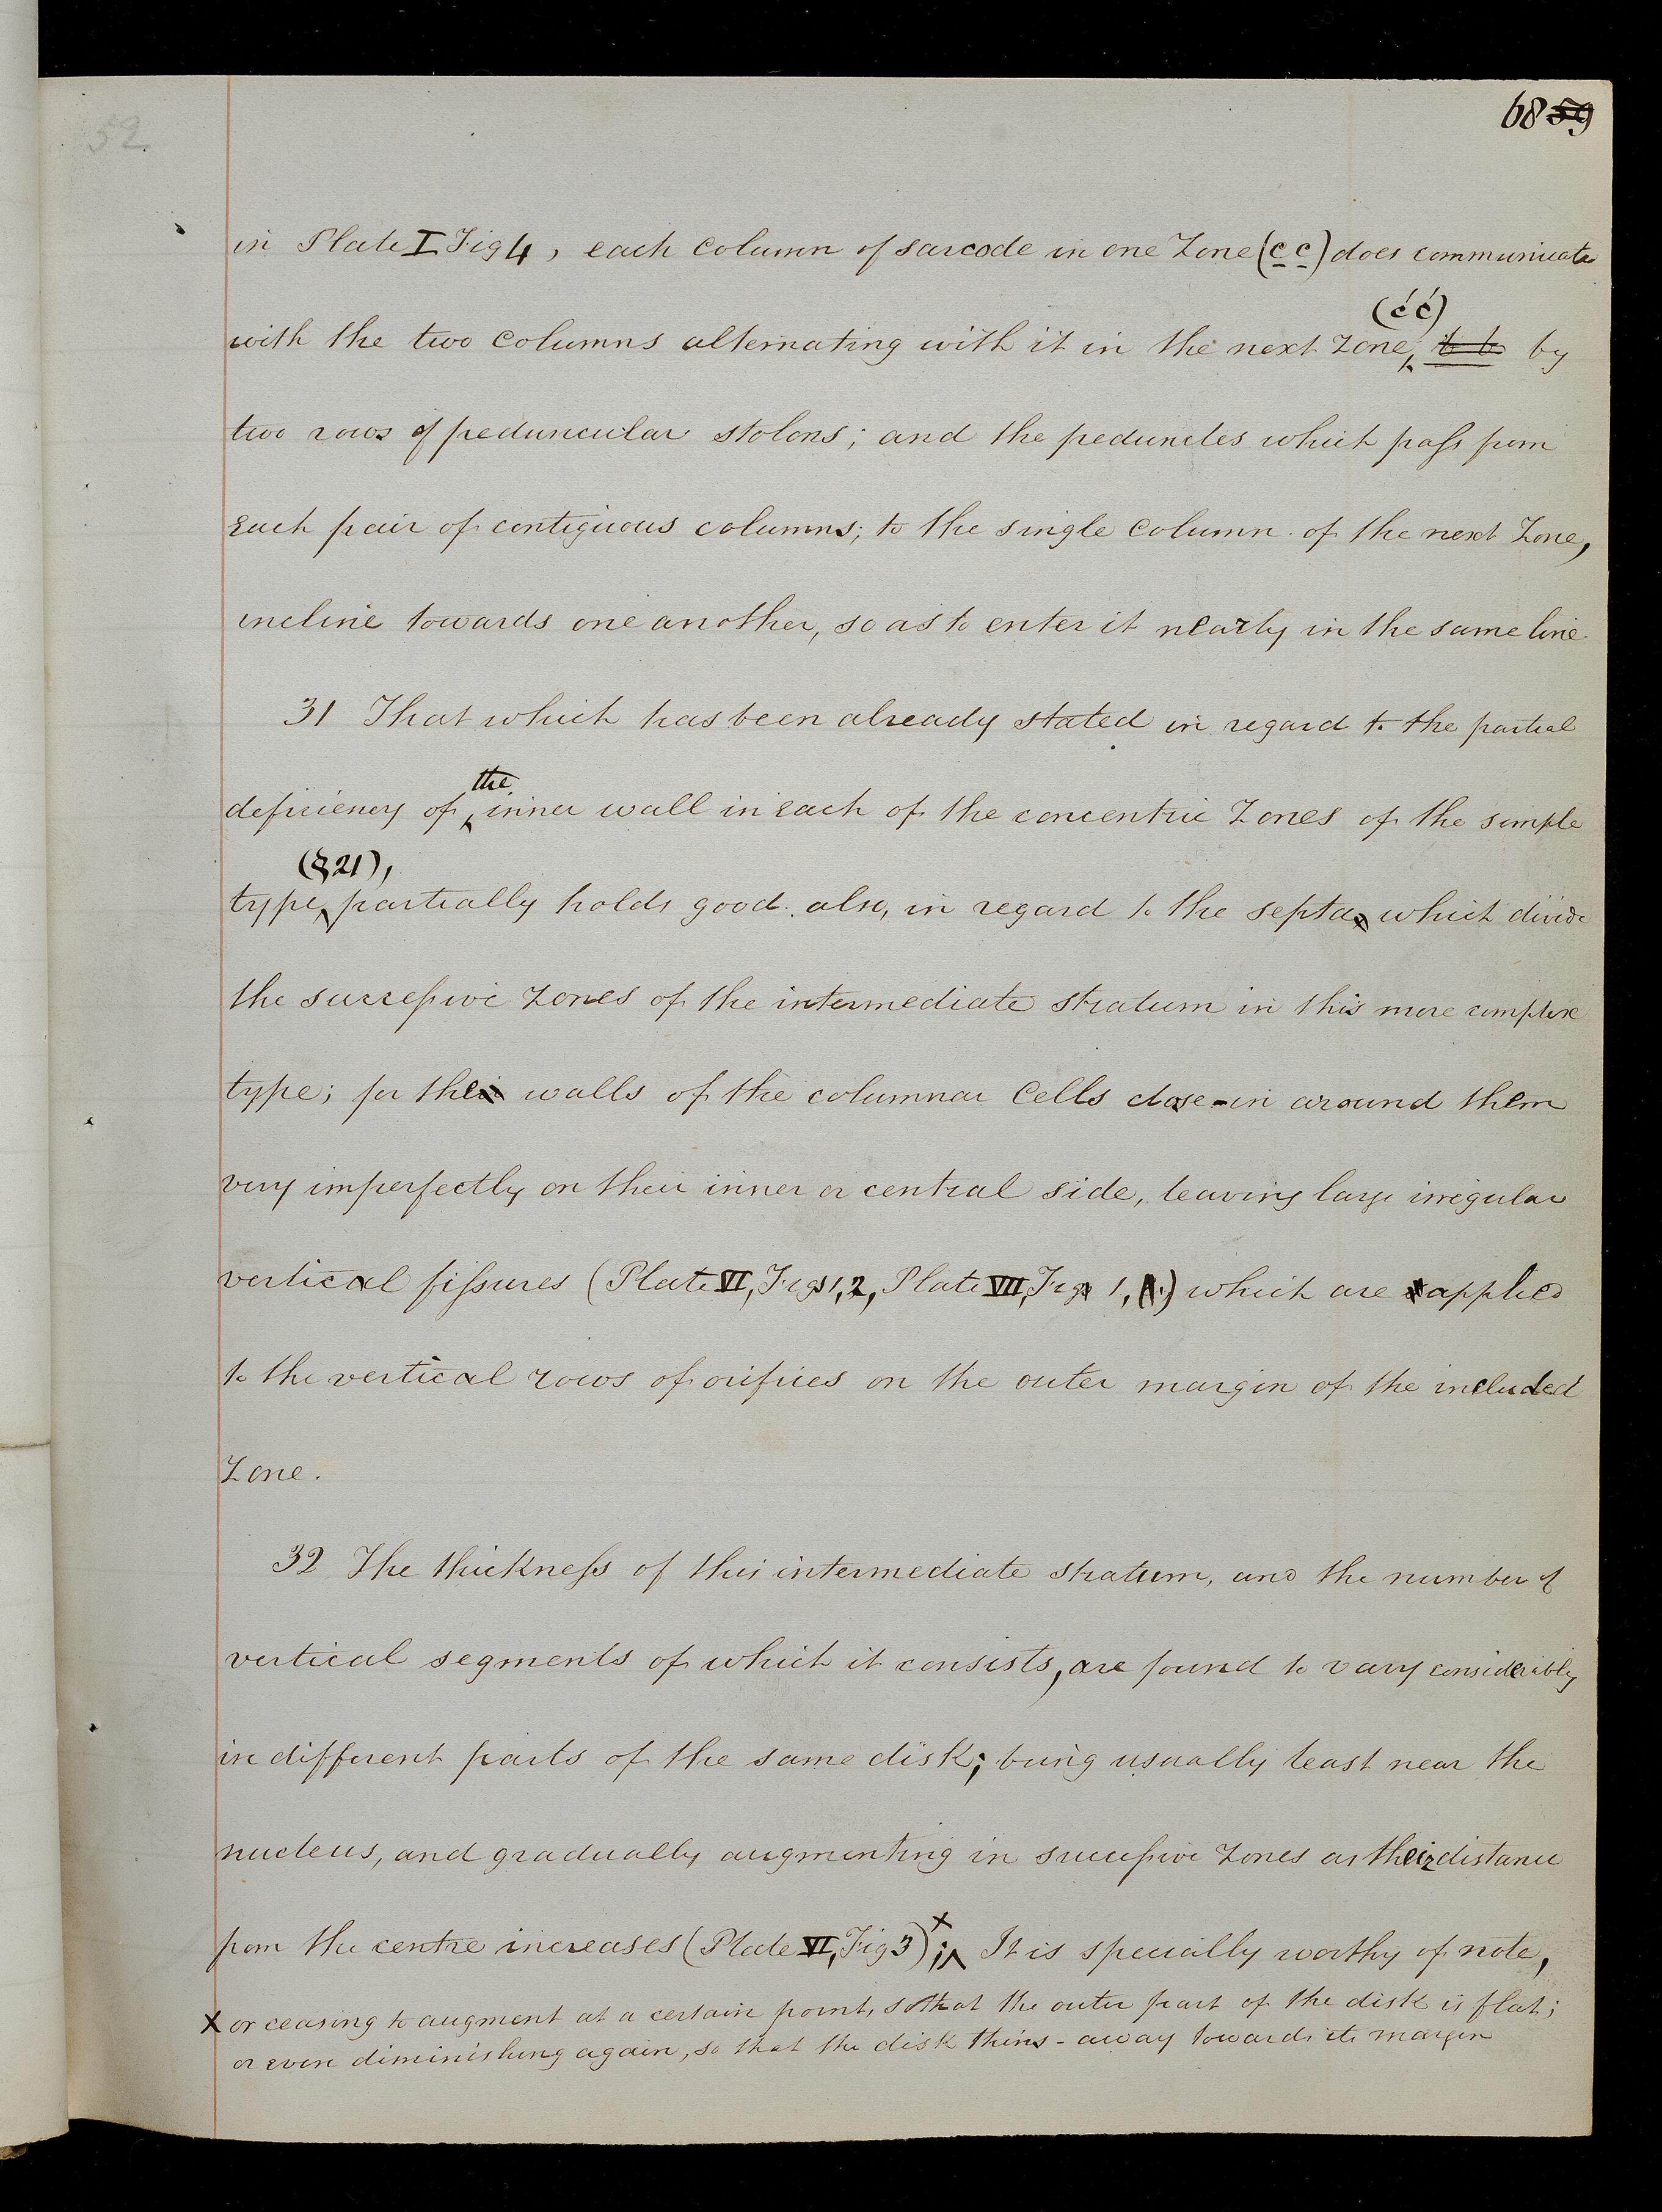 52
68 59
in Plate I Fig 4, each column of sarcode in one Zone (c c) does communicate
(c' c')
with the two columns alternating with it in the next zone, b b by
two rows of peduncular stolons; and the peduncles which pass from
each pair of contiguous columns; to the single column of the next Zone,
incline towards one another, so as to enter it nearly in the same line.
31 That which has been already stated in regard to the partial
the
deficiency of inner wall in each of the concentric Zones of the simple
(§21),
type, partially holds good also, in regard to the septa which divide
the successive zones of the intermediate stratum in this more complex
type; for the walls of the columnar Cells close-in around them
very imperfectly on their inner or central side, leaving large irregular
vertical fissures (Plate VI, Figs 1, 2, Plate VII, Fig 1, ) which are applied
to the vertical rows of orifices on the outer margin of the included
Zone.
32 The thickness of this intermediate stratum, and the number of
vertical segments of which it consists, are found to vary considerably
in different parts of the same disk; being usually least near the
nucleus, and gradually augmenting in successive zones as their distance
from the centre increases (Plate VI, Fig 3) x; It is specially worthy of note,
x or ceasing to augment at a certain point, so that the outer part of the disk is flat;
or even diminishing again, so that the disk thins-away towards its margin